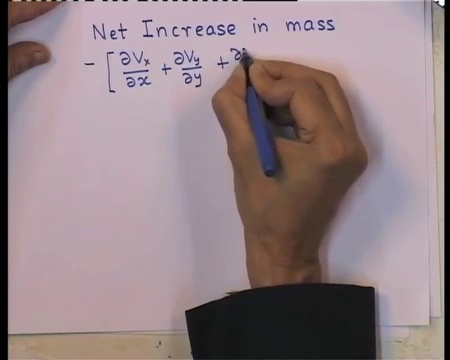 Net Increase in mass
- [ ∂Vx/∂x + ∂Vy/∂y + ∂